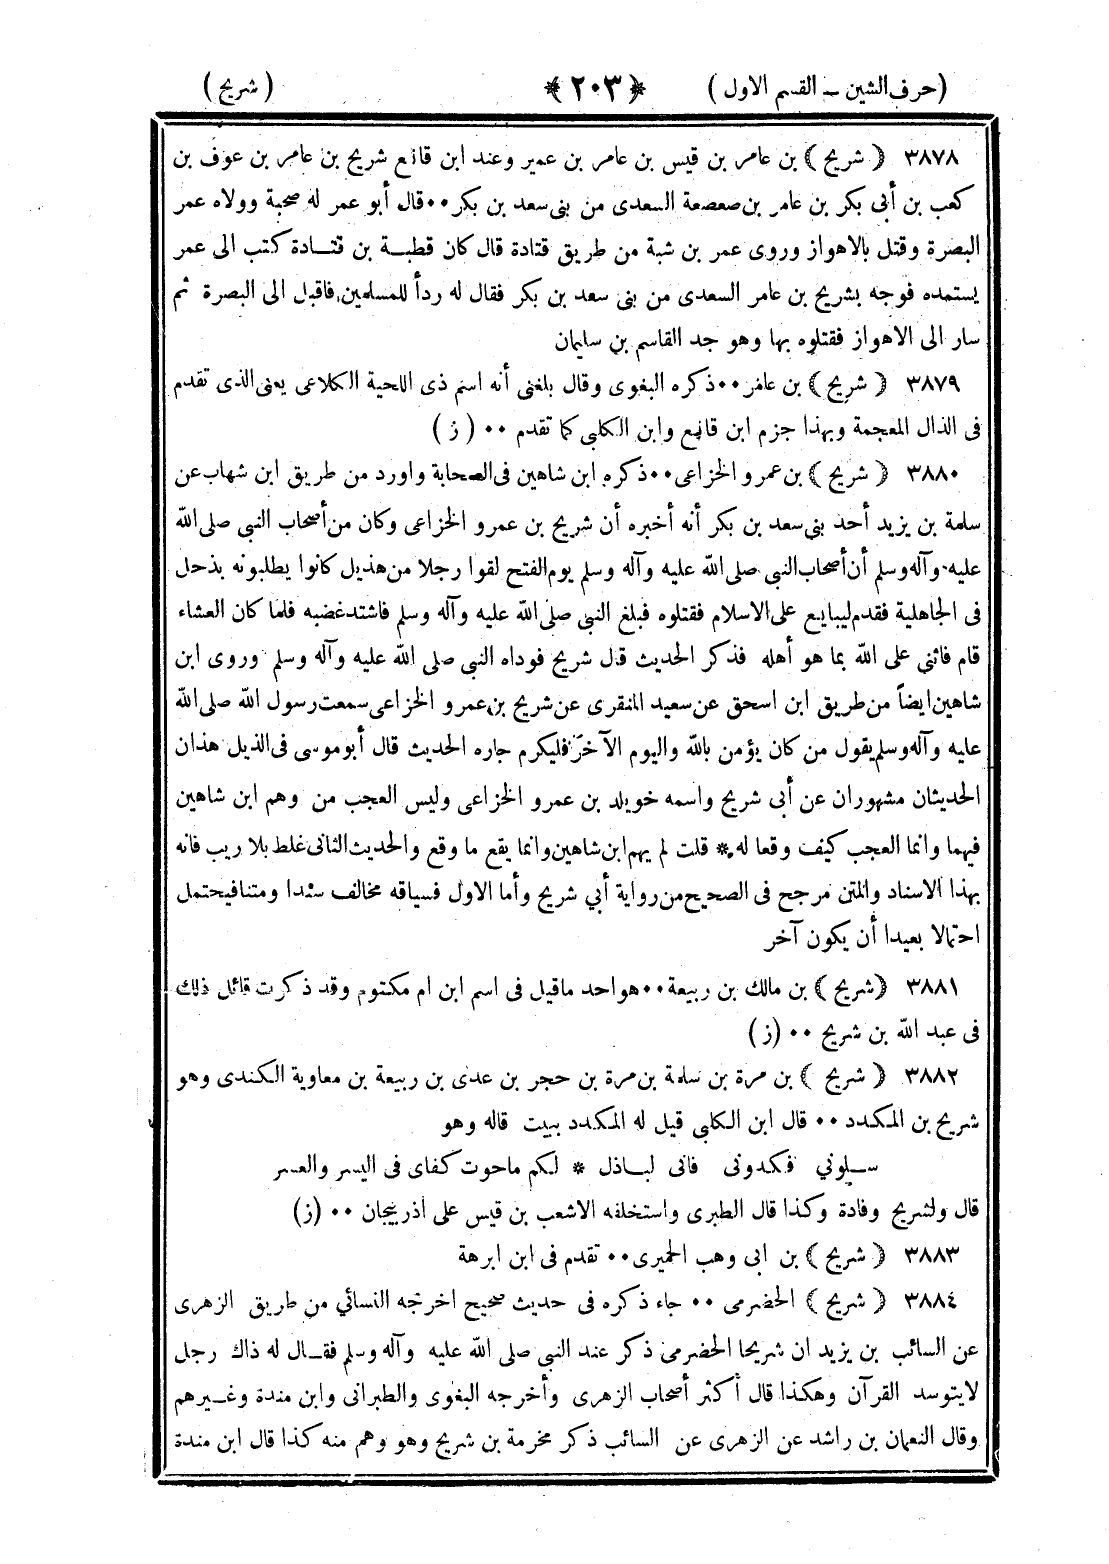 (حرف الشين – القسم الاول) ﴿٢٠٣﴾ (شريح)
٣٨٧٨ ﴿شريح﴾ بن عامر بن قيس بن عامر بن عمير وعند ابن قانع شريح بن عامر بن عوف بن
كعب بن أبى بكر بن عامر بن صعصعة السعدى من بنى سعد بن بكر ٠٠ قال أبو عمر له صحبة وولاه عمر
البصرة وقتل بالاهواز وروى عمر بن شبة من طريق قتادة قال كان قطبة بن قتادة كتب الى عمر
يستمده فوجه بشريح بن عامر السعدى من بنى سعد بن بكر فقال له ردأ للمسلمين فاقبل الى البصرة ثم
سار الى الاهواز فقتلوه بها وهو جد القاسم بن سليمان
٣٨٧٩ ﴿شريح﴾ بن عامر ٠٠ ذكره البغوى وقال بلغنى أنه اسم ذى اللحية الكلاعى يعنى الذى تقدم
فى الذال المعجمة وبهذا جزم ابن قانع وابن الكلبى كما تقدم ٠٠ (ز)
٣٨٨٠ ﴿شريح﴾ بن عمرو الخزاعى ٠٠ ذكره ابن شاهين فى الصحابة واورد من طريق ابن شهاب عن
سلمة بن يزيد أحد بنى سعد بن بكر أنه أخبره أن شريح بن عمرو الخزاعى وكان من أصحاب النبى صلى الله
عليه وآله وسلم أن أصحاب النبى صلى الله عليه وآله وسلم يوم الفتح لقوا رجلا من هذيل كانوا يطلبونه بذحل
فى الجاهلية فقدم ليبايع على الاسلام فقتلوه فبلغ النبى صلى الله عليه وآله وسلم فاشتد غضبه فلما كان العشاء
قام فاثنى على الله بما هو أهله فذكر الحديث قال شريح فوداه النبى صلى الله عليه وآله وسلم وروى ابن
شاهين ايضاً من طريق ابن اسحق عن سعيد المنقرى عن شريح بن عمرو الخزاعى سمعت رسول الله صلى الله
عليه وآله وسلم يقول من كان يؤمن بالله واليوم الآخر فليكرم جاره الحديث قال أبو موسى فى الذيل هذان
الحديثان مشهوران عن أبى شريح واسمه خويلد بن عمرو الخزاعى وليس العجب من وهم ابن شاهين
فيهما وانما العجب كيف وقعا له * قلت لم يهم ابن شاهين وانما يقع ما وقع والحديث الثانى غلط بلا ريب فانه
بهذا الاسناد والمتن مرجح فى الصحيح من رواية أبي شريح وأما الاول فسياقه مخالف سندا ومتنا فيحتمل
احتمالا بعيدا أن يكون آخر
٣٨٨١ ﴿شريح﴾ بن مالك بن ربيعة ٠٠ هو احد ماقيل فى اسم ابن ام مكتوم وقد ذكرت قائل ذلك
فى عبد الله بن شريح ٠٠ (ز)
٣٨٨٢ ﴿شريح﴾ بن مرة بن سلمة بن مرة بن حجر بن عدى بن ربيعة بن معاوية الكندى وهو
شريح بن المكدد ٠٠ قال ابن الكلبى قيل له المكدد ببيت قاله وهو
سلوني فكدونى فانى لباذل * لكم ماحوت كفاى فى اليسر والعسر
قال ولشريح وفادة وكذا قال الطبرى واستخلفه الاشعب بن قيس على أذربيجان ٠٠ (ز)
٣٨٨٣ ﴿شريح﴾ بن ابى وهب الحميرى ٠٠ تقدم فى ابن ابرهة
٣٨٨٤ ﴿شريح﴾ الحضرمى ٠٠ جاء ذكره فى حديث صحيح اخرجه النسائي من طريق الزهرى
عن السائب بن يزيد ان شريحا الحضرمى ذكر عند النبى صلى الله عليه وآله وسلم فقال له ذاك رجل
لايتوسد القرآن وهكذا قال أكثر أصحاب الزهرى وأخرجه البغوى والطبرانى وابن مندة وغيرهم
وقال النعمان بن راشد عن الزهرى عن السائب ذكر مخرمة بن شريح وهو وهم منه كذا قال ابن مندة